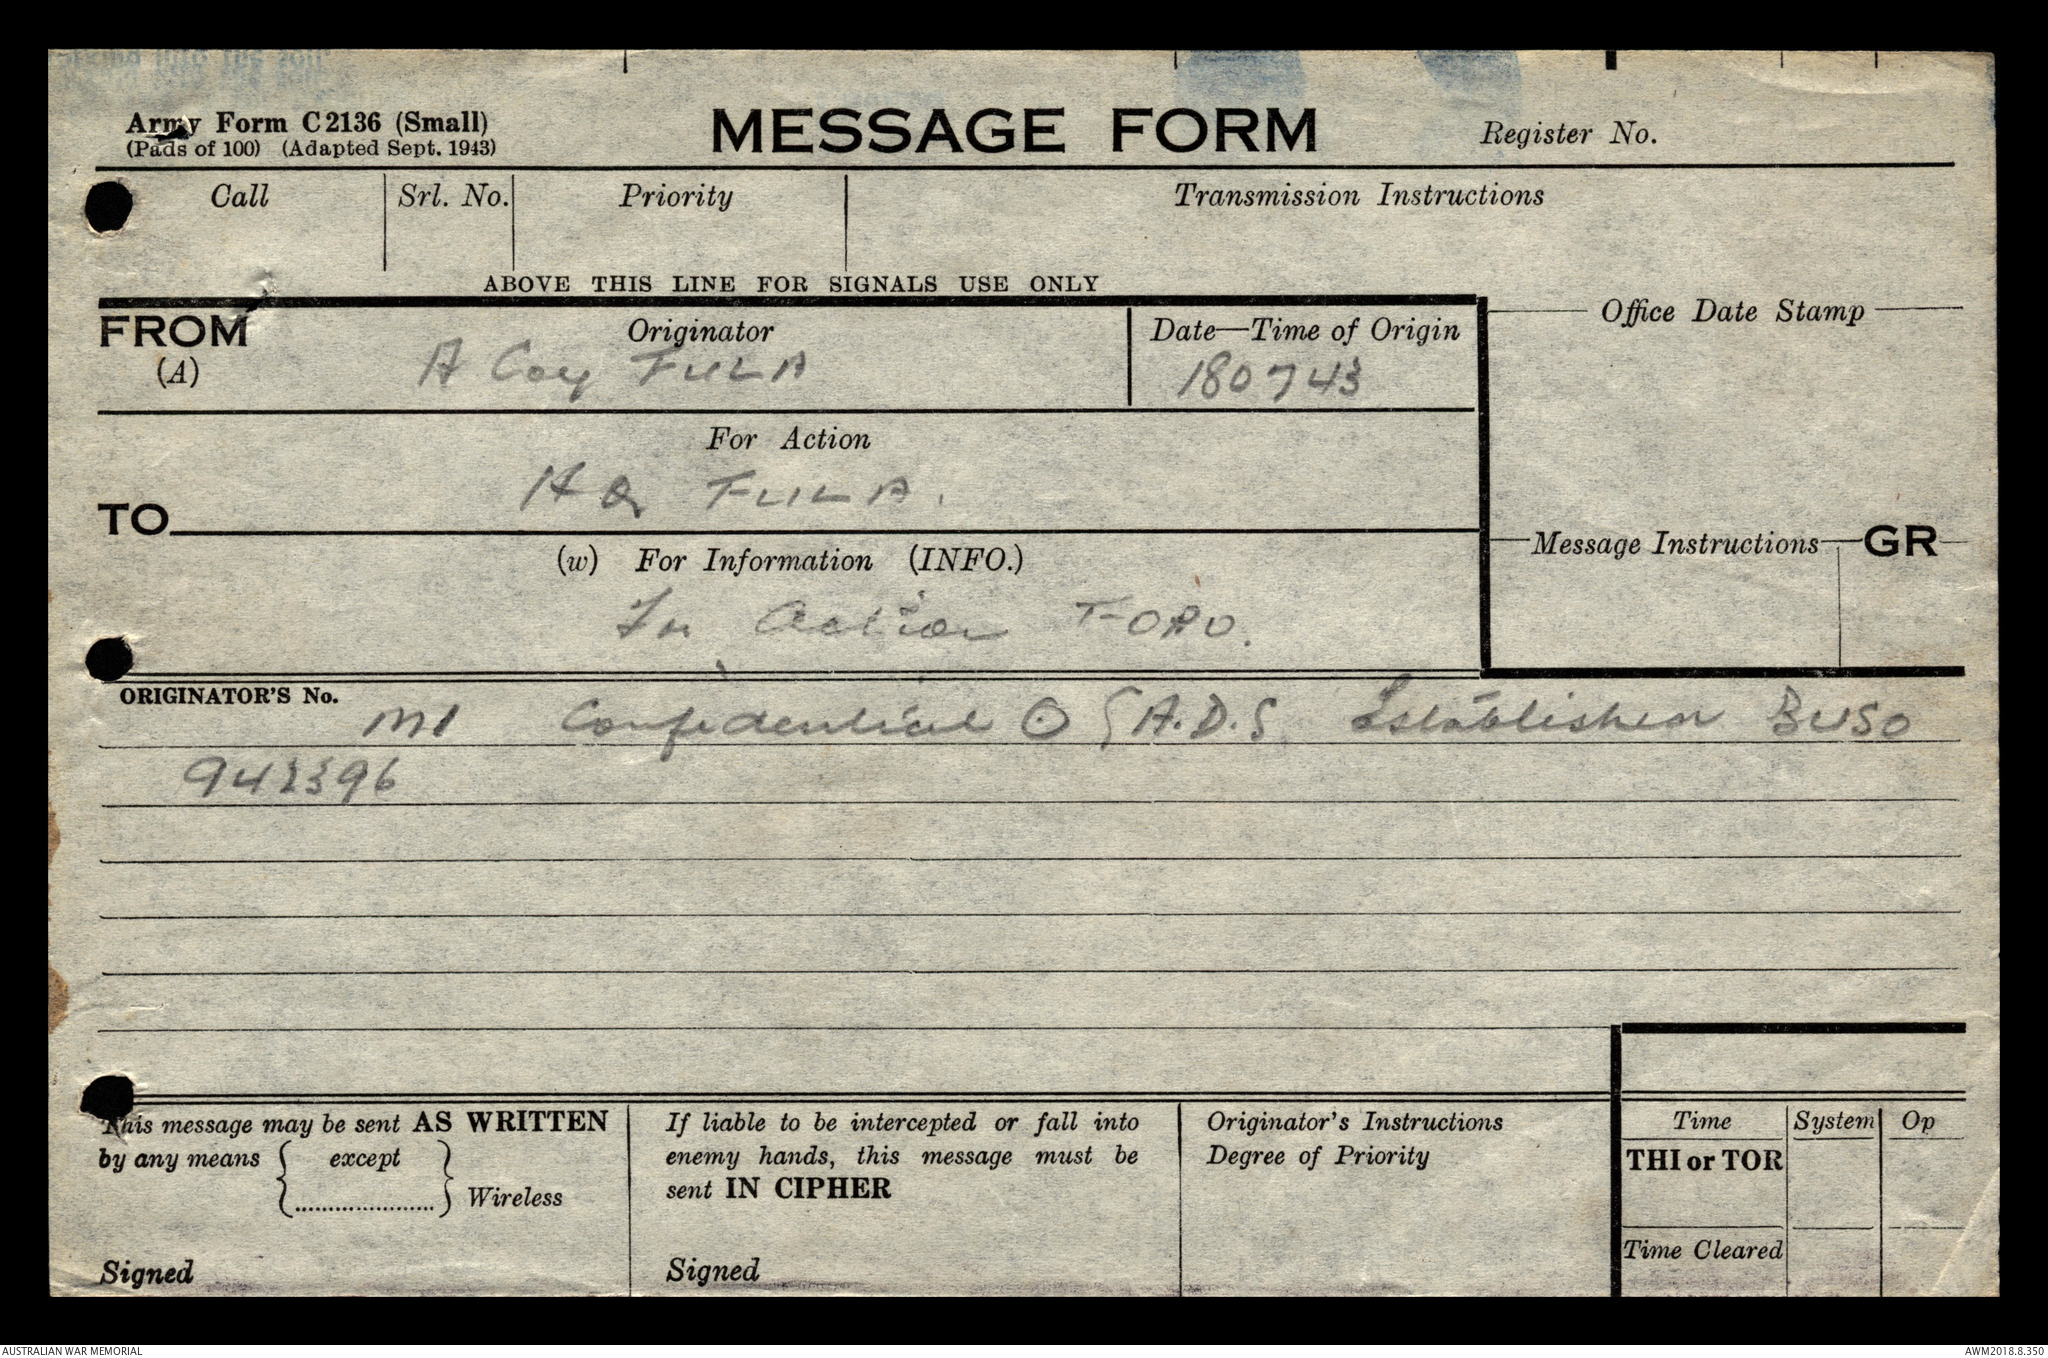 Army Form C2136 (Small)
(Pads of 100) (Adapted Sept. 1943)
MESSAGE FORM
Register No.
Call
Srl. No.
Priority
Transmission Instructions
ABOVE THIS LINE FOR SIGNALS USE ONLY
FROM
(A)
Originator
A Coy FULA
Date—Time of Origin
180743
Office Date Stamp
For Action
HQ FULA.
TO
(w) For Information (INFO.)
For Action TOPO.
Message Instructions
GR
ORIGINATOR'S No.
M1 Confidential O A.D.S. Established BUSO
942396
This message may be sent AS WRITTEN
by any means
except
.....................
Wireless
Signed
If liable to be intercepted or fall into
enemy hands, this message must be
sent IN CIPHER
Signed
Originator's Instructions
Degree of Priority
Time
System
Op
THI or TOR
Time Cleared
AUSTRALIAN WAR MEMORIAL
AWM2018.8.350